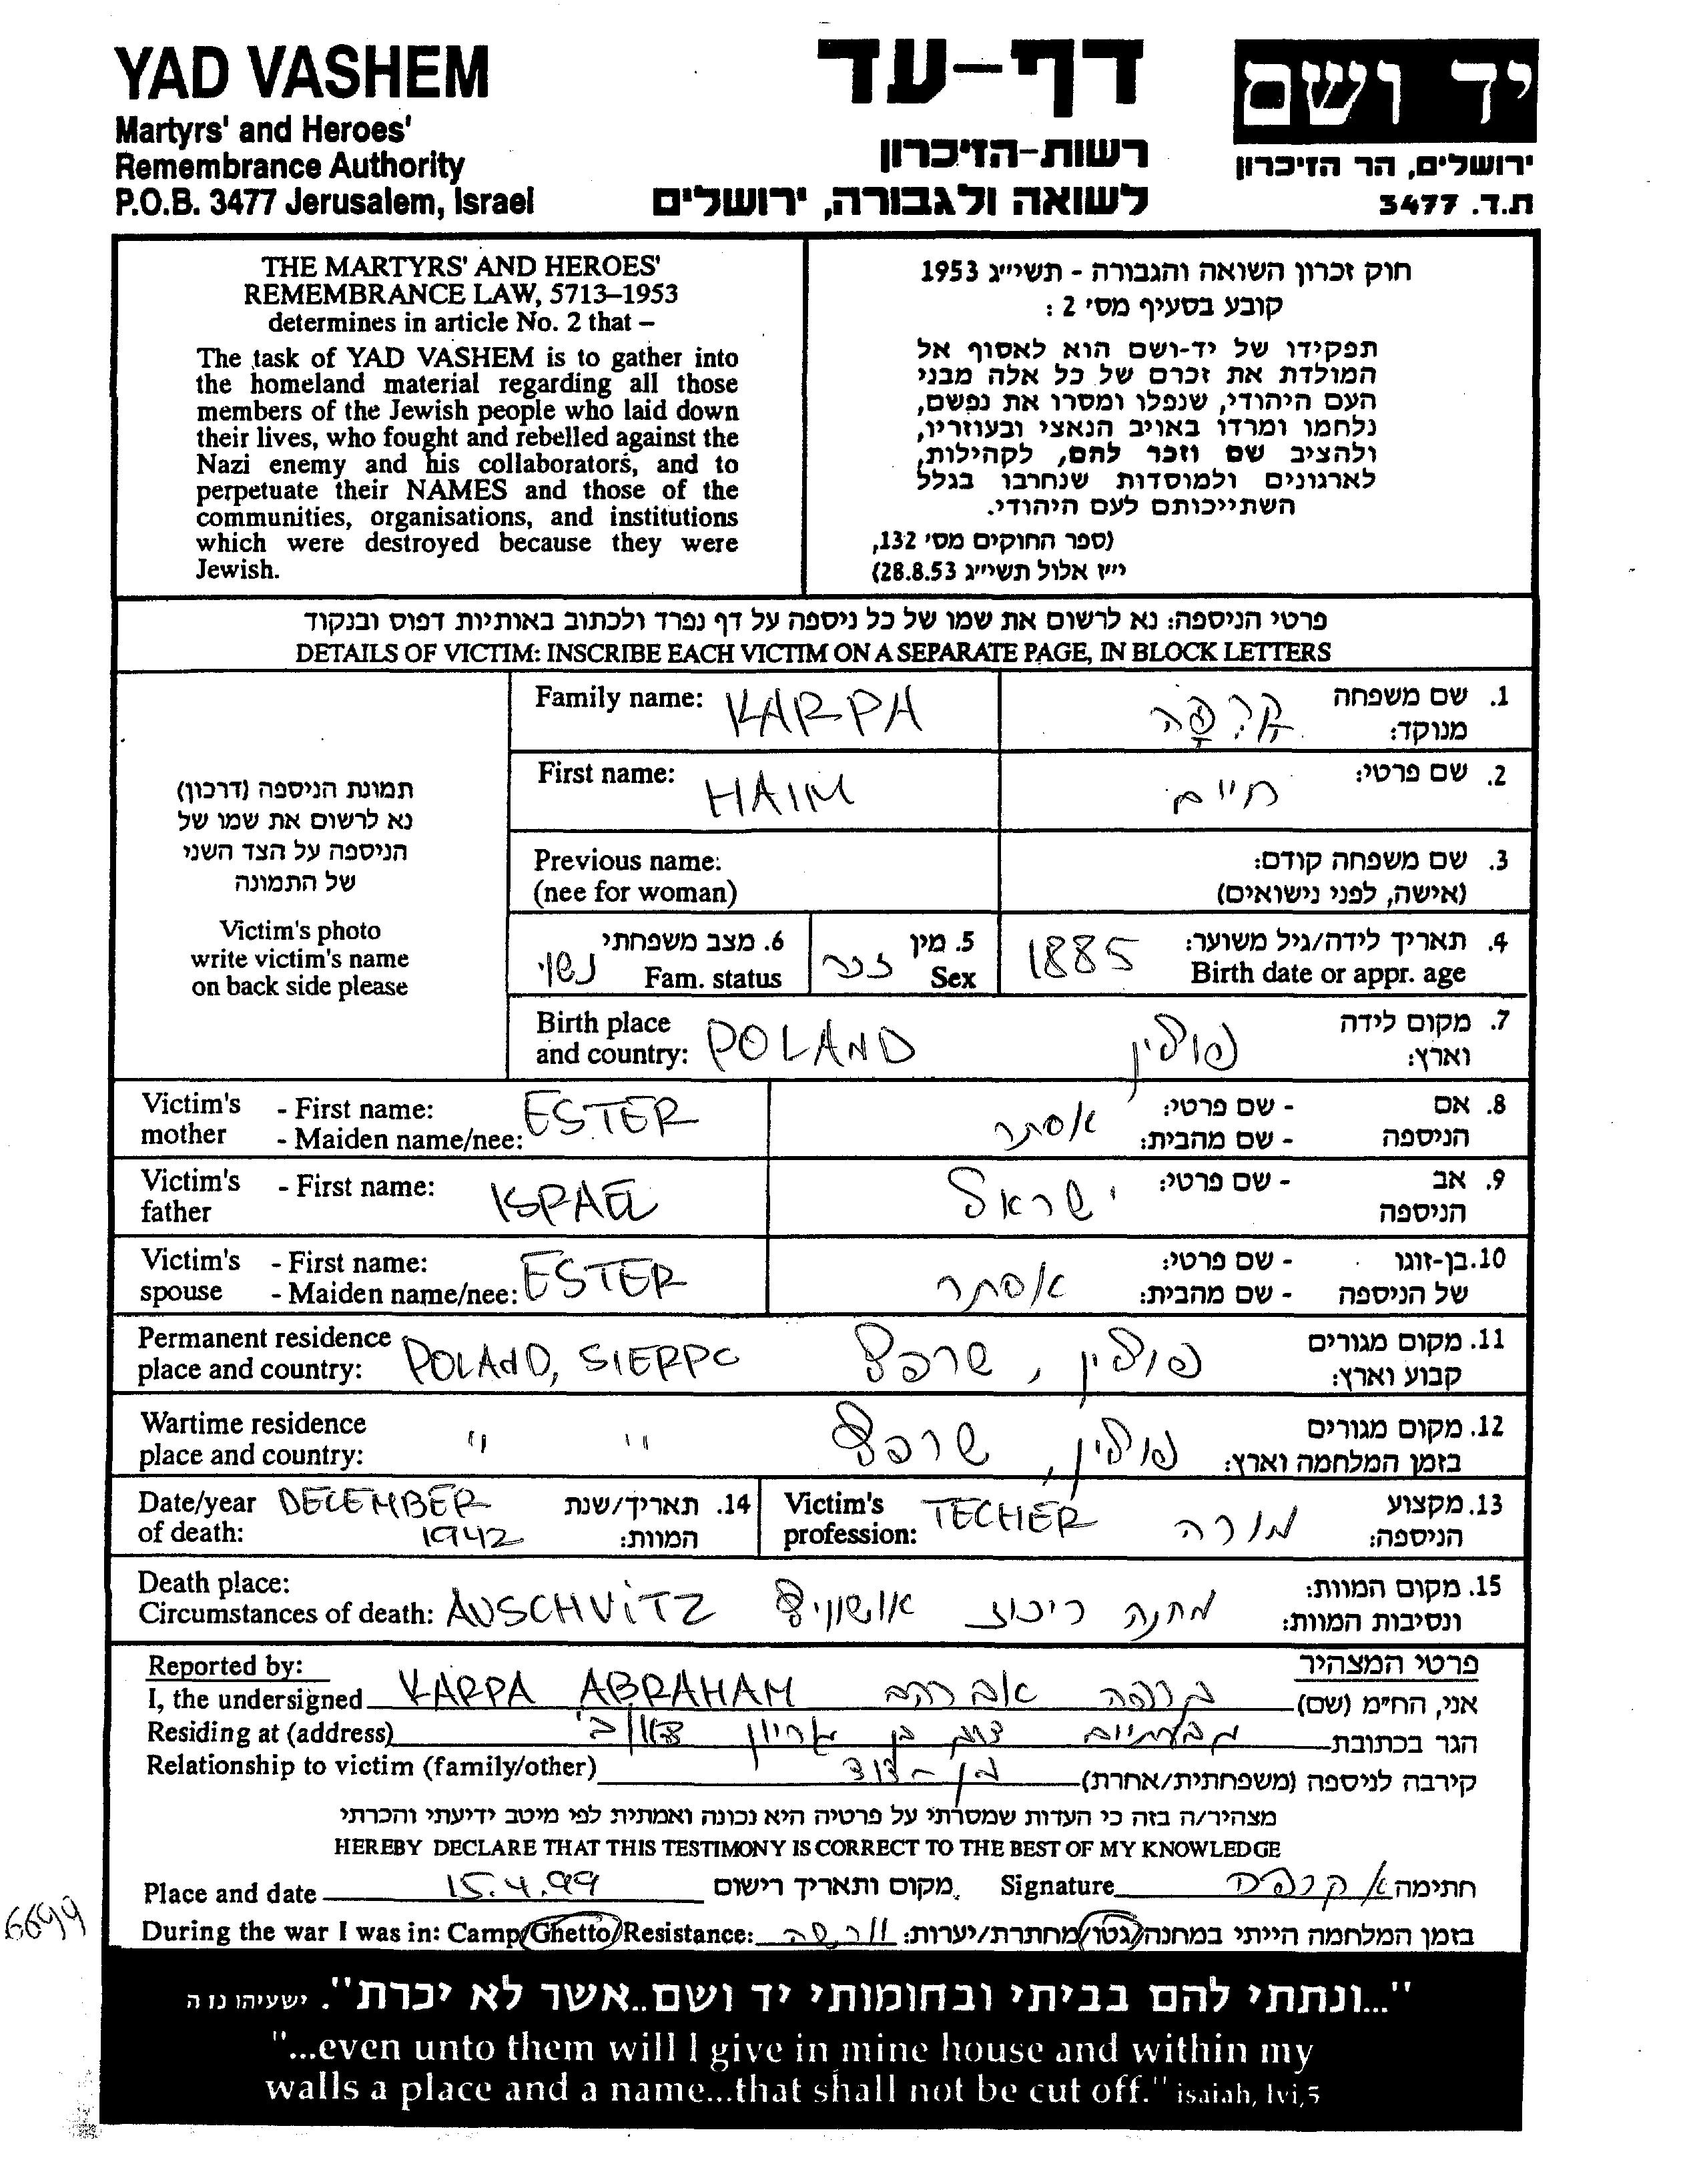 YAD VASHEM
Martyrs' and Heroes'
Remembrance Authority
P.O.B. 3477 Jerusalem, Israel
דף-עד
רשות-הזיכרון
לשואה ולגבורה, ירושלים
יד ושם
ירושלים, הר הזיכרון
ת.ד. 3477
THE MARTYRS' AND HEROES'
REMEMBRANCE LAW, 5713–1953
determines in article No. 2 that –
The task of YAD VASHEM is to gather into
the homeland material regarding all those
members of the Jewish people who laid down
their lives, who fought and rebelled against the
Nazi enemy and his collaborators, and to
perpetuate their NAMES and those of the
communities, organisations, and institutions
which were destroyed because they were
Jewish.
חוק זכרון השואה והגבורה - תשי״ג 1953
קובע בסעיף מס׳ 2 :
תפקידו של יד-ושם הוא לאסוף אל
המולדת את זכרם של כל אלה מבני
העם היהודי, שנפלו ומסרו את נפשם,
נלחמו ומרדו באויב הנאצי ובעוזריו,
ולהציב שם וזכר להם, לקהילות,
לארגונים ולמוסדות שנחרבו בגלל
השתייכותם לעם היהודי.
(ספר החוקים מס׳ 132,
י״ז אלול תשי״ג 28.8.53)
פרטי הניספה: נא לרשום את שמו של כל ניספה על דף נפרד ולכתוב באותיות דפוס ובנקוד
DETAILS OF VICTIM: INSCRIBE EACH VICTIM ON A SEPARATE PAGE, IN BLOCK LETTERS
תמונת הניספה (דרכון)
נא לרשום את שמו של
הניספה על הצד השני
של התמונה
Victim's photo
write victim's name
on back side please
Family name: KARPA קרפה 1. שם משפחה
מנוקד:
First name: HAIM חיים 2. שם פרטי:
Previous name: 3. שם משפחה קודם:
(nee for woman) (אישה, לפני נישואים)
6. מצב משפחתי 5. מין 4. תאריך לידה/גיל משוער:
נשוי Fam. status זכר Sex 1885 Birth date or appr. age
Birth place 7. מקום לידה
and country: POLAND פולין וארץ:
Victim's - First name: ESTER אסתר - שם פרטי: 8. אם
mother - Maiden name/nee: - שם מהבית: הניספה
Victim's - First name: ISRAEL ישראל - שם פרטי: 9. אב
father הניספה
Victim's - First name: ESTER אסתר - שם פרטי: 10. בן-זוגו
spouse - Maiden name/nee: - שם מהבית: של הניספה
Permanent residence 11. מקום מגורים
place and country: POLAND, SIERPC פולין, שרפץ קבוע וארץ:
Wartime residence 12. מקום מגורים
place and country: " " פולין, שרפץ בזמן המלחמה וארץ:
Date/year DECEMBER 14. תאריך/שנת
of death: 1942 המוות:
Victim's TECHER מורה 13. מקצוע
profession: הניספה:
Death place: 15. מקום המוות:
Circumstances of death: AUSCHVITZ מחנה ריכוז אושוויץ ונסיבות המוות:
Reported by: פרטי המצהיר
I, the undersigned KARPA ABRAHAM קרפה אברהם אני, החי״מ (שם)
Residing at (address) גבעתיים דוד בן גוריון הגר בכתובת
Relationship to victim (family/other) בן-דוד קירבה לניספה (משפחתית/אחרת)
מצהיר/ה בזה כי העדות שמסרתי על פרטיה היא נכונה ואמתית לפי מיטב ידיעתי והכרתי
HEREBY DECLARE THAT THIS TESTIMONY IS CORRECT TO THE BEST OF MY KNOWLEDGE
Place and date 15.4.99 מקום ותאריך רישום Signature א קרפה חתימה
6699
During the war I was in: Camp/Ghetto/Resistance: וורשה בזמן המלחמה הייתי במחנה/גטו/מחתרת/יערות:
"...ונתתי להם בביתי ובחומותי יד ושם..אשר לא יכרת". ישעיהו נו ה
"...even unto them will I give in mine house and within my
walls a place and a name...that shall not be cut off." isaiah, lvi,5